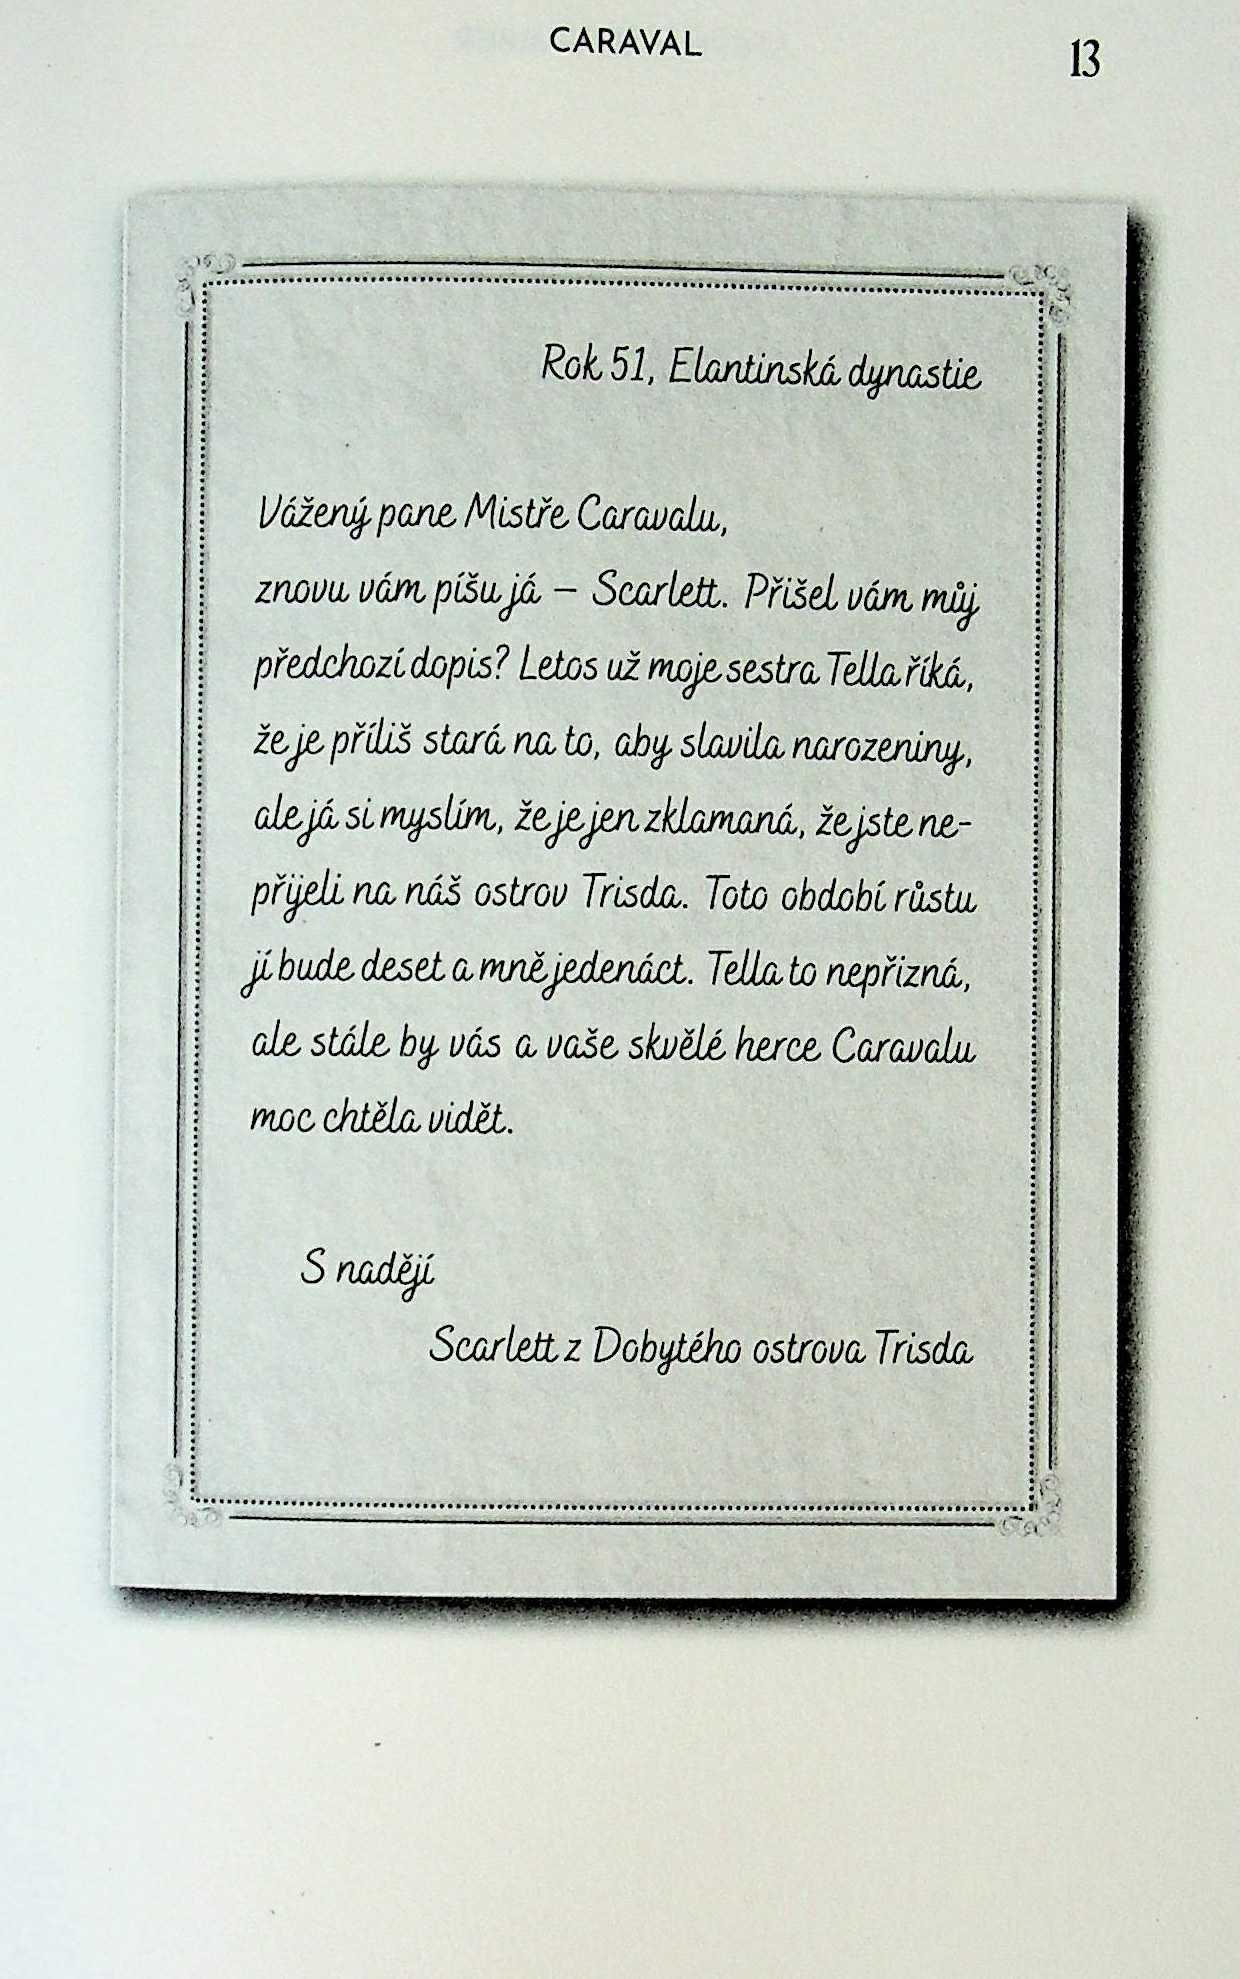 CARAVAL
13
Rok 51, Elantinská dynastie
Vážený pane Mistře Caravalu,
znovu vám píšu já – Scarlett. Přišel vám můj
předchozí dopis? Letos už moje sestra Tella říká,
že je příliš stará na to, aby slavila narozeniny,
ale já si myslím, že je jen zklamaná, že jste ne-
přijeli na náš ostrov Trisda. Toto období růstu
jí bude deset a mně jedenáct. Tella to nepřizná,
ale stále by vás a vaše skvělé herce Caravalu
moc chtěla vidět.
S nadějí
Scarlett z Dobytého ostrova Trisda